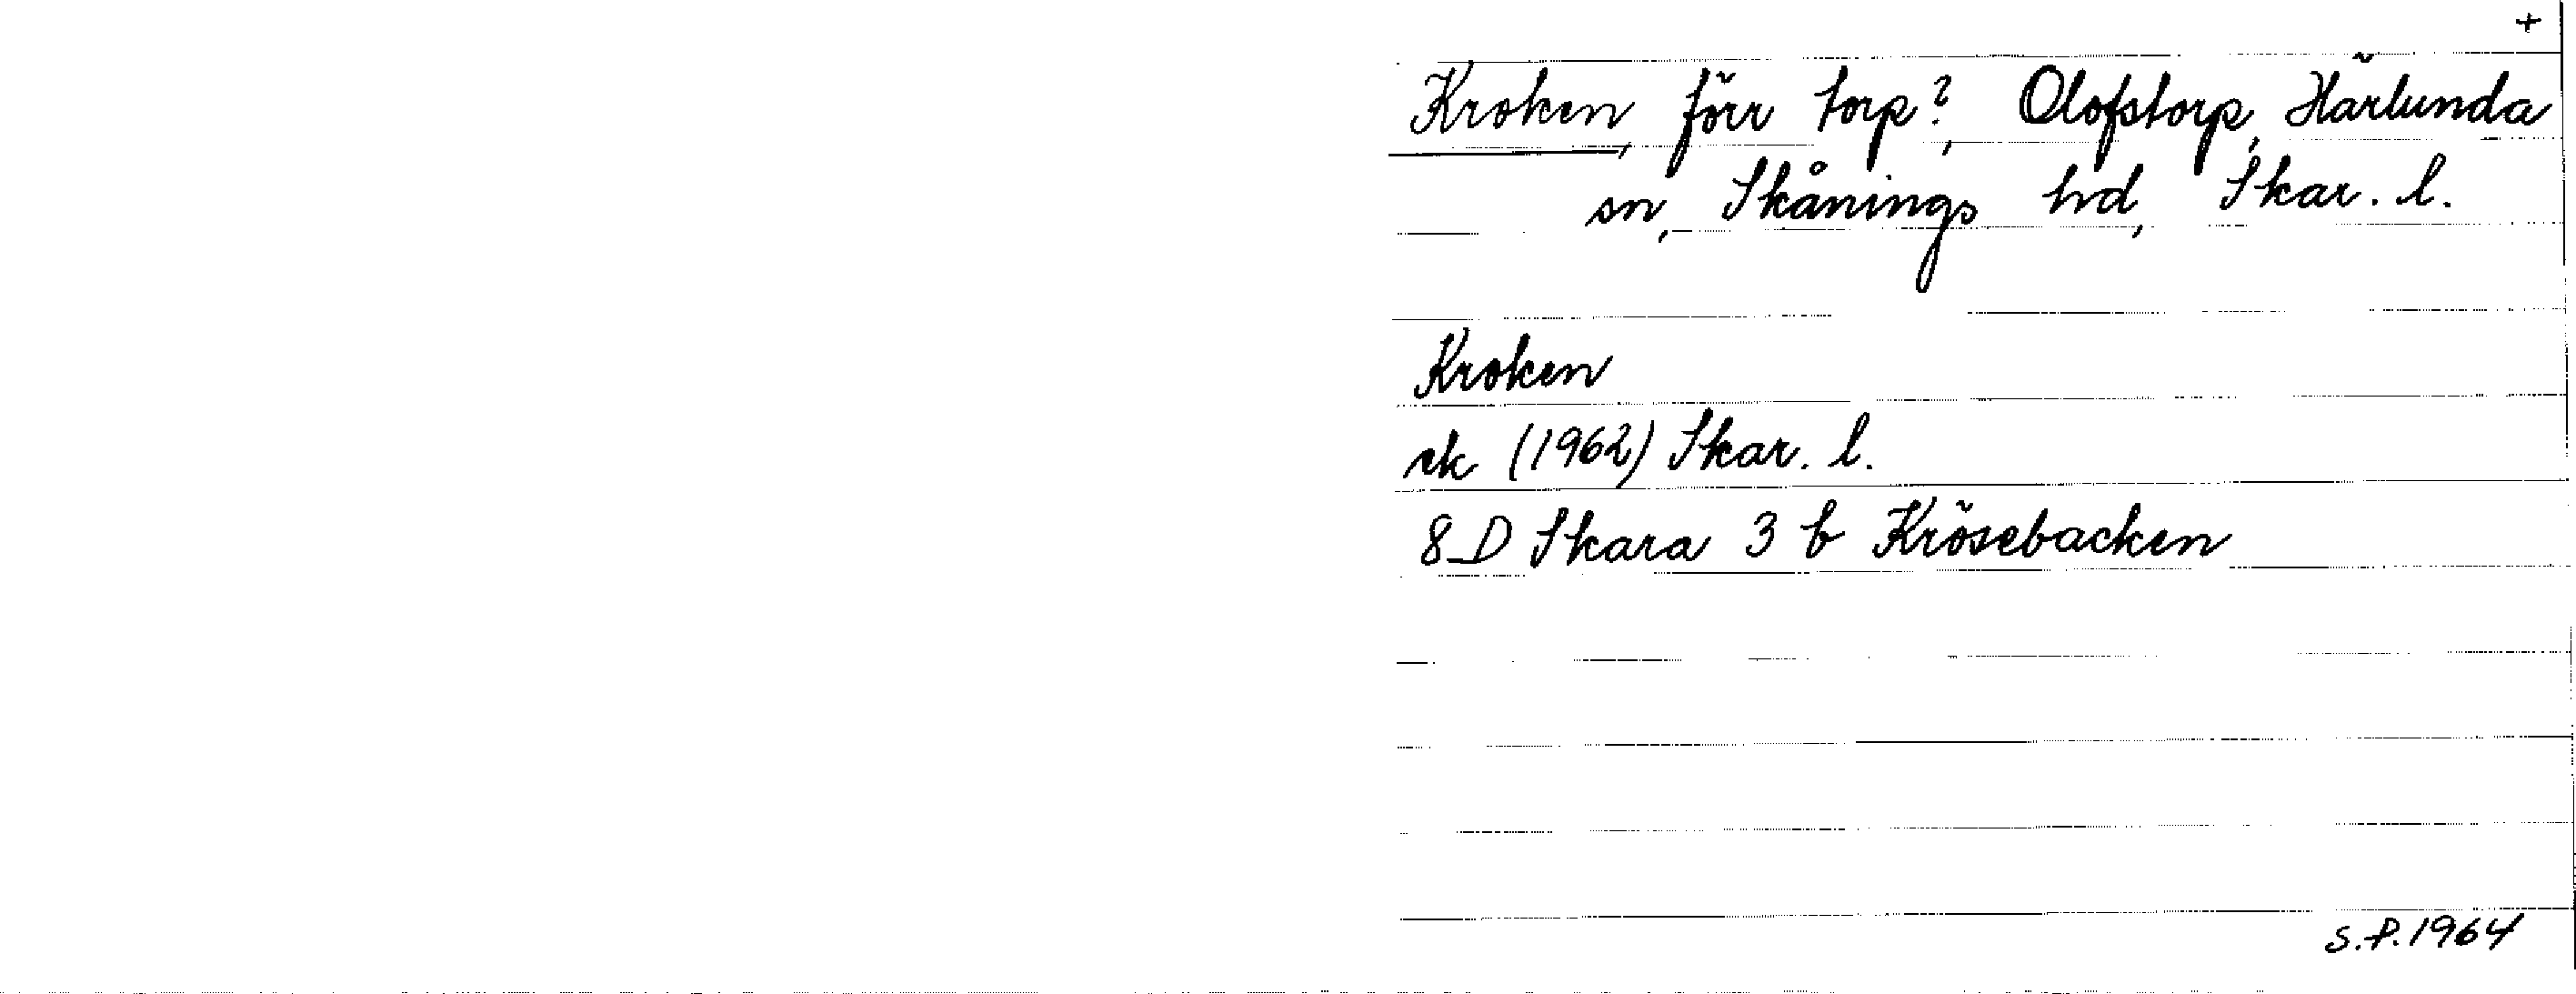 +
Kroken, förr torp?, Olofstorp, Härlunda
sn, Skånings hd, Skar. l.
Kroken
ek (1962) Skar. l.
8 D Skara 3 b Krösebacken
S.P. 1964